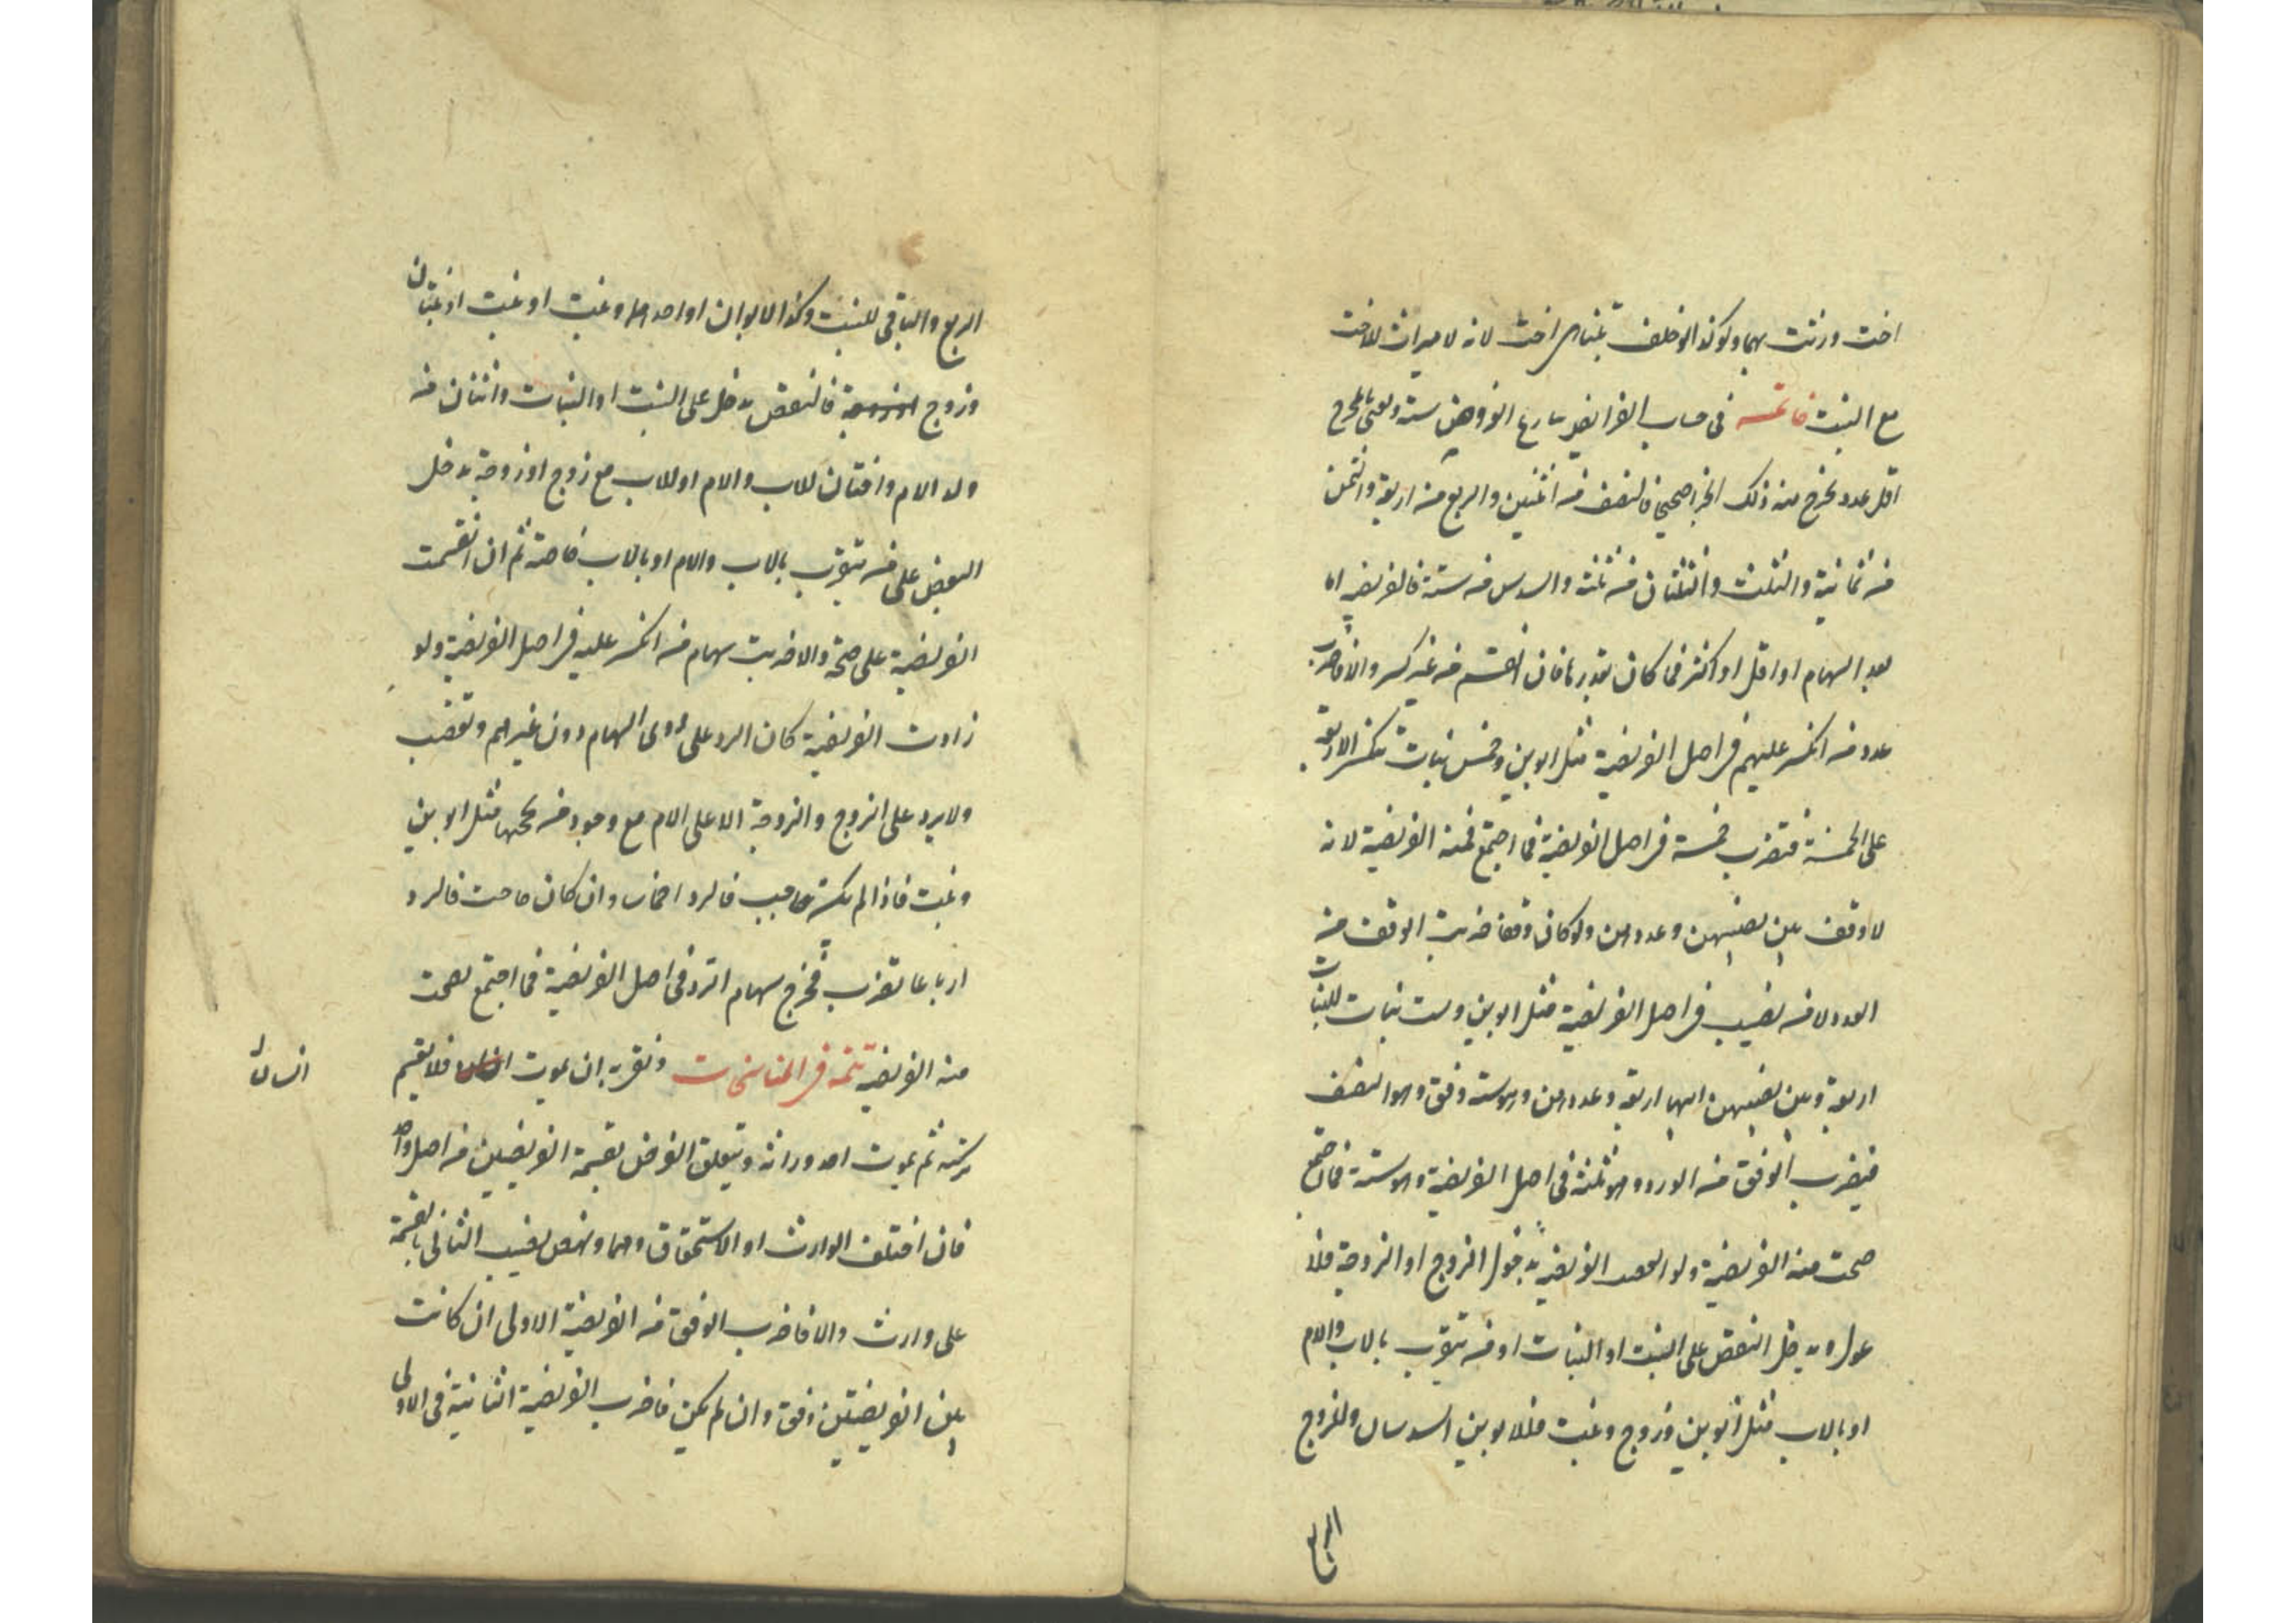 اخت ورثت بهما ولو كذا لو خلف بنتا هى اخت لانه لا ميراث للاخت
مع البنت خاتمه فى حساب الفرايض مخارج الفروض ستة ونعنى بالمخرج
اقل عدد يخرج منه ذلك الجز صحيحا فالنصف من اثنين والربع من اربعة والثمن
من ثمانية والثلث والثلثان من ثلثة والسدس من ستة فالفريضه اما
بعدد السهام او اقل او اكثر فما كان بقدرها فان انقسم من غير كسر والا فاضرب
عدد من انكسر عليهم فى اصل الفريضة مثل ابوين وخمس بنات تنكسر الاربعة
على الخمسة فتضرب خمسة فى اصل الفريضة فما اجتمع فمنه الفريضة لانه
لا وفق بين نصيبهن وعددهن ولو كان وفقا ضربت الوفق من
العدد لا من نصيب فى اصل الفريضة مثل ابوين وست بنات للبنات
اربعة وبين نصيبهن اربعة وعددهن وهو ستة وفق وهو النصف
فيضرب الوفق من العدد وهو ثلثة فى اصل الفريضة وهو ستة فما اجتمع
صحت منه الفريضة ولو نقصت الفريضة بدخول الزوج او الزوجة فلا
عول ويدخل النقص على البنت او البنات او من يتقرب بالاب والام
او بالاب مثل ابوين وزوج وبنت فللابوين السدسان وللزوج
الربع
الربع والباقى للبنت وكذا الابوان او احدهما وبنت او بنت او بنتان
وزوج او زوجة فالنقص يدخل على البنت او البنات واثنان من
ولد الام واختان للاب والام او للاب مع زوج او زوجة يدخل
النقص على من يتقرب بالاب والام او بالاب خاصة ثم ان انقسمت
الفريضة على صحة والا ضربت سهام من انكسر عليه فى اصل الفريضة ولو
زادت الفريضة كان الرد على ذوى السهام دون غيرهم وتعصب
ولا يرد على الزوج والزوجة الا على الام مع وجود من يحجبها مثل ابوين
وبنت فاذا لم يكن حاجب فالرد اخماسا وان كان حاجب فالرد
ارباعا تضرب مخرج سهام الرد فى اصل الفريضة فما اجتمع صحت
منه الفريضة تتمه فى المناسخات ونقريه ان يموت انسان فلا يقسم
انسان
تركته ثم يموت احد وراثه ويتعلق الغرض بقسمة الفريضتين من اصل واحد
فان اختلف الوارث او الاستحقاق او هما ونهض نصيب الثانى بالقسمة
على وارث والا فاضرب الوفق من الفريضة الاولى ان كانت
بين الفريضتين وفق وان لم يكن فاضرب الفريضة الثانية فى الاولى